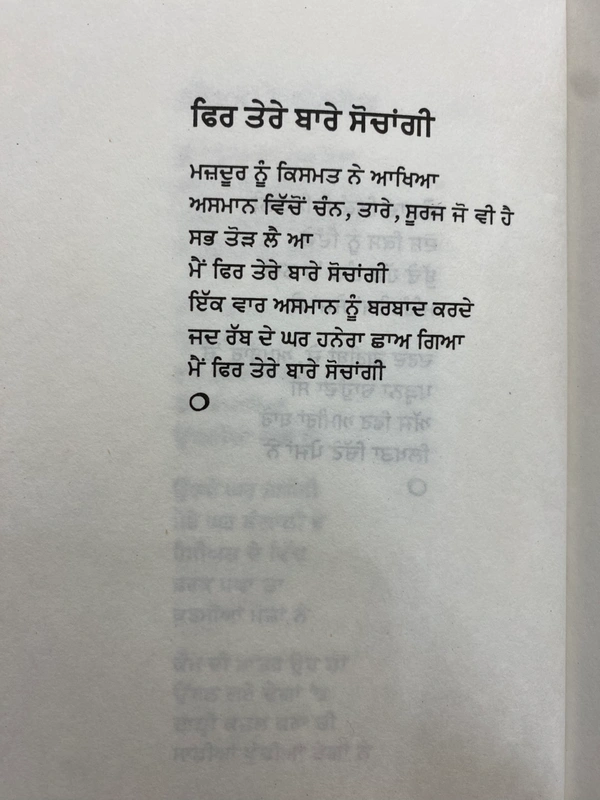 ਫਿਰ ਤੇਰੇ ਬਾਰੇ ਸੋਚਾਂਗੀ
ਮਜ਼ਦੂਰ ਨੂੰ ਕਿਸਮਤ ਨੇ ਆਖਿਆ
ਅਸਮਾਨ ਵਿੱਚੋਂ ਚੰਨ, ਤਾਰੇ, ਸੂਰਜ ਜੋ ਵੀ ਹੈ
ਸਭ ਤੋੜ ਲੈ ਆ
ਮੈਂ ਫਿਰ ਤੇਰੇ ਬਾਰੇ ਸੋਚਾਂਗੀ
ਇੱਕ ਵਾਰ ਅਸਮਾਨ ਨੂੰ ਬਰਬਾਦ ਕਰਦੇ
ਜਦ ਰੱਬ ਦੇ ਘਰ ਹਨੇਰਾ ਛਾਅ ਗਿਆ
ਮੈਂ ਫਿਰ ਤੇਰੇ ਬਾਰੇ ਸੋਚਾਂਗੀ